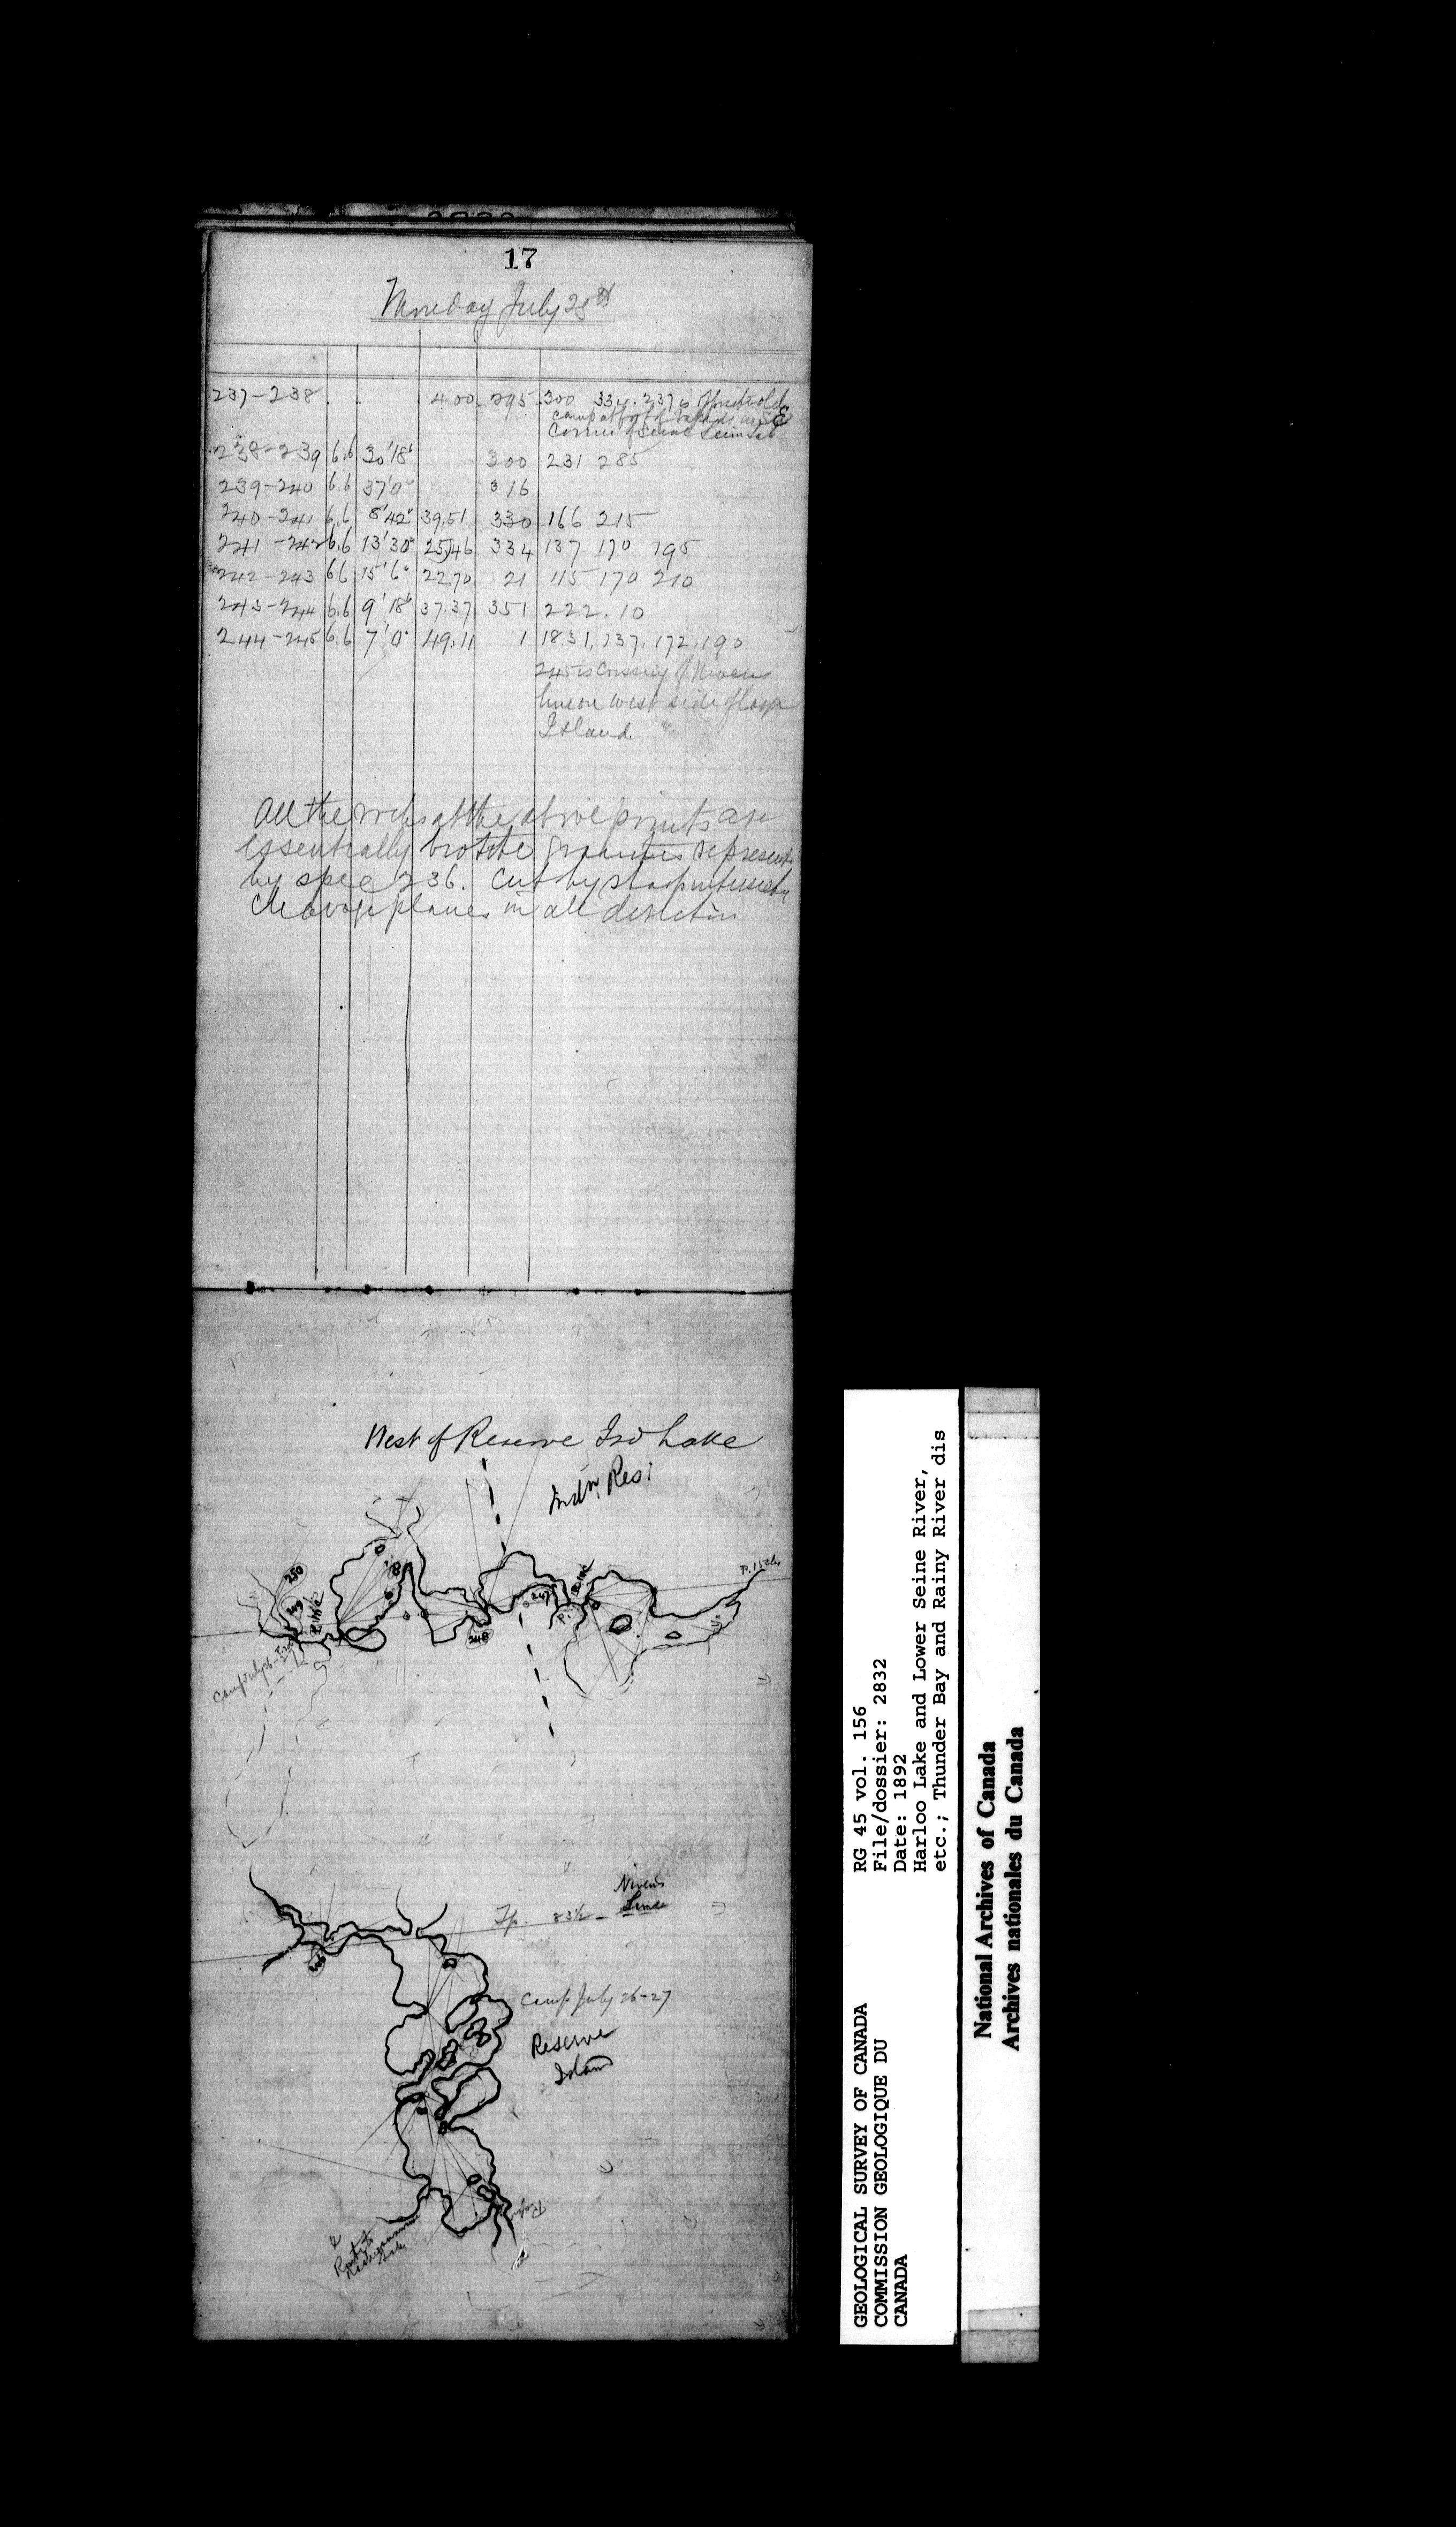 17
Monday July 25th
237-238 4.00 295 300 334. 237 is
camp at foot of
Corner of
238-239 6.6 30'18" 300 231 285
239-240 6.6 37'0" 316
240-241 6.6 8'42" 39.51 330 166 215
241-242 6.6 13'30" 25.46 334 137 170 195
242-243 66 15'6" 22.70 21 115 170 210
243-244 6.6 9'18" 37.37 351 222. 10
244-245 6.6 7'0" 49.11 1 18.31, 137. 172. 190
245 is Crossing of Nivens
line on west side of large
Island
All the rocks at the above points are
essentially biotite granites represent
by spec 236. Cut by sharp
cleavage planes in all direction
West of Reserve Isd Lake
Indn. Res:
P. 15 chs
250
249
P 11½
247
248
Camp July
Tp. 83½ Nivens
Line
Camp July 26-27
Reserve
Island
Route to
RG 45 vol. 156
File/dossier: 2832
Date: 1892
Harloo Lake and Lower Seine River,
etc.; Thunder Bay and Rainy River dis
GEOLOGICAL SURVEY OF CANADA
COMMISSION GEOLOGIQUE DU
CANADA
National Archives of Canada
Archives nationales du Canada